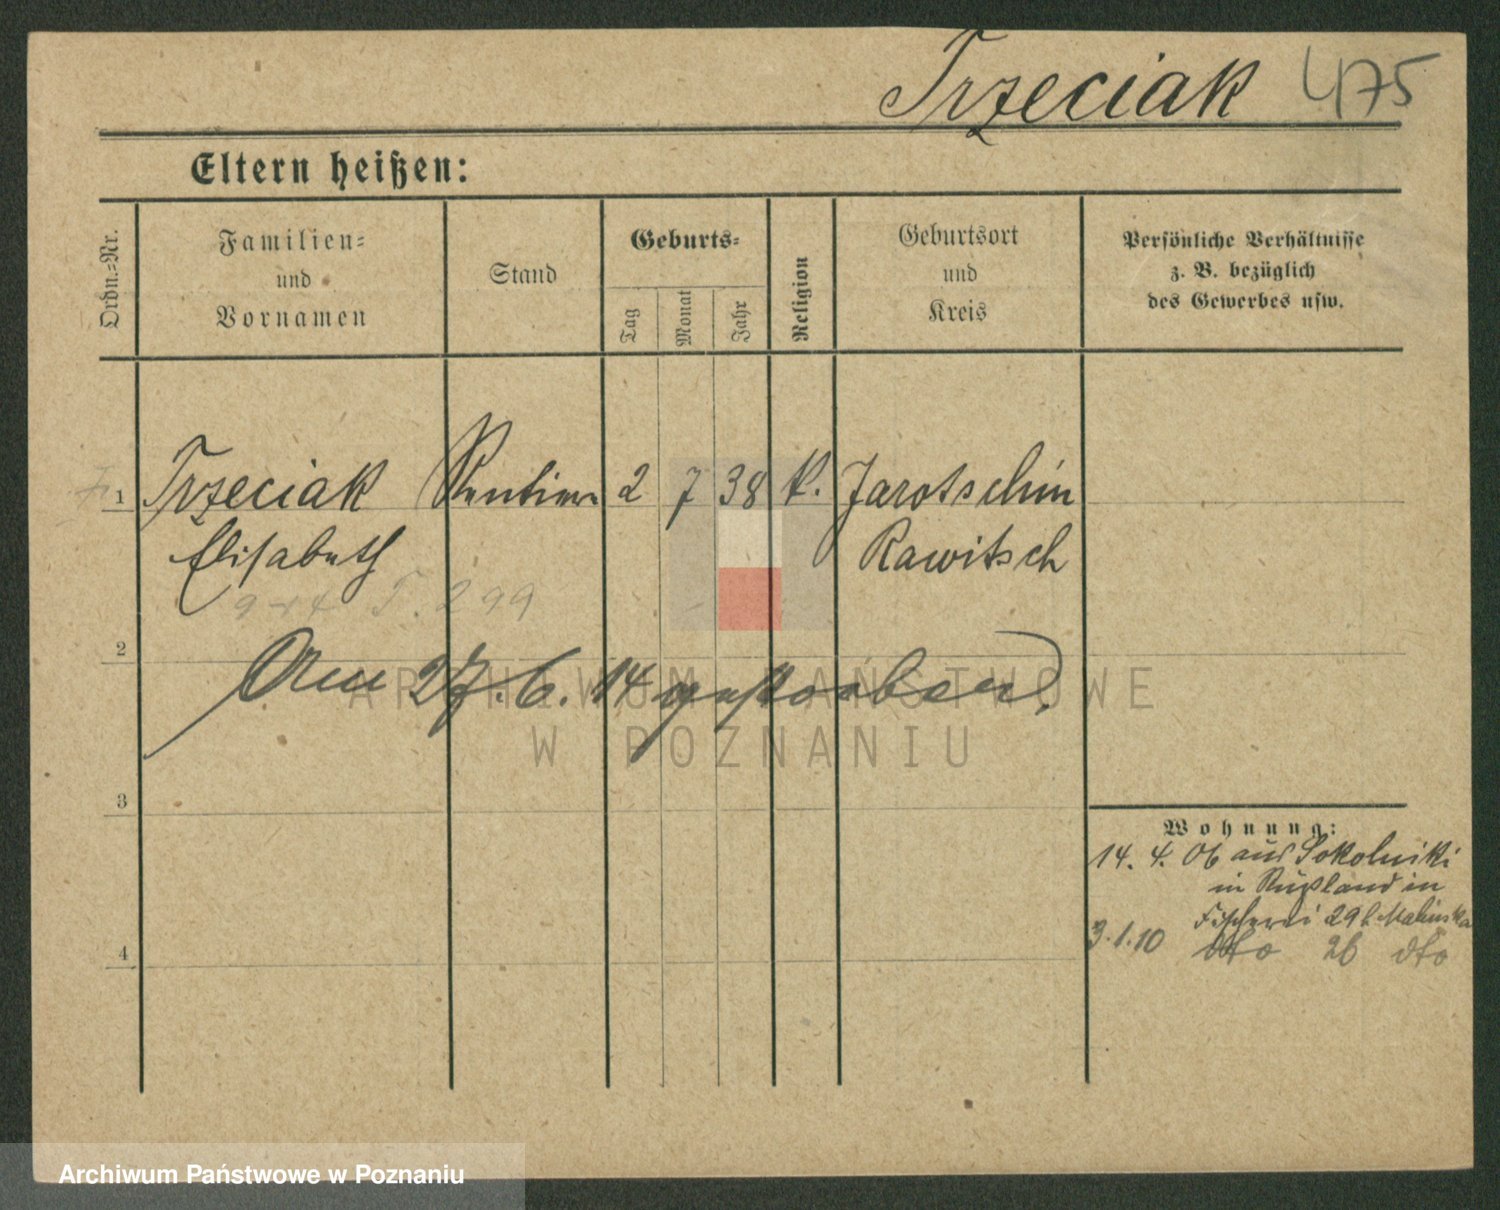 Trzeciak 475
Eltern heißen:
Ordn.-Nr.
Familien-
und
Vornamen
Stand
Geburts-
Tag
Monat
Jahr
Religion
Geburtsort
und
Kreis
Persönliche Verhältnisse
z. B. bezüglich
des Gewerbes usw.
1 Trzeciak Rentiere 2 7 38 k. Jarotschin
Elisabeth Rawitsch
T. 299
2
Am 27.6.14 gestorben.
ARCHIWUM PAŃSTWOWE
W POZNANIU
3
Wohnung:
14. 4. 06 aus Sokolniki
in Rußland in
Fischerei 29 b. Malinska
3.1.10 dto 26 dto
4
Archiwum Państwowe w Poznaniu